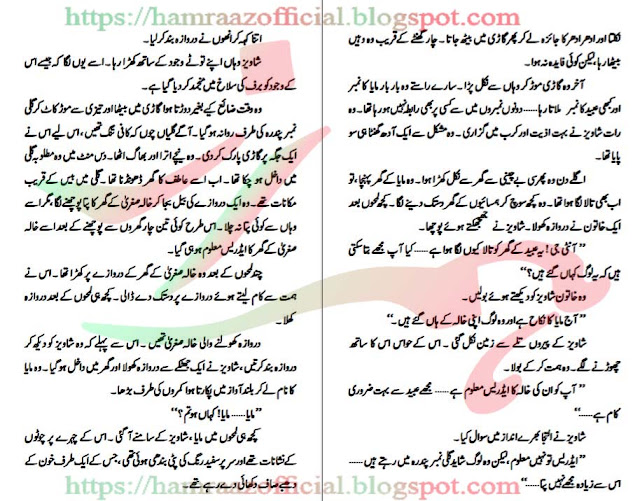 https://hamraazofficial.blogspot.com
نکلتا اور ادھر ادھر کا جائزہ لے کر پھر گاڑی میں بیٹھ جاتا۔ چار گھنٹے کے قریب وہ وہیں
بیٹھا رہا، لیکن کوئی فائدہ نہ ہوا۔
آخر وہ گاڑی موڑ کر وہاں سے نکل پڑا۔ سارے راستے وہ بار بار مایا کا نمبر
اور کبھی عبید کا نمبر ملاتا رہا...... دونوں نمبروں میں سے کسی پر بھی رابطہ نہیں ہو رہا تھا۔ وہ
رات شاویز نے بہت اذیت اور کرب میں گزاری۔ وہ مشکل سے ایک آدھ گھنٹا ہی سو
پایا تھا۔
اگلے دن وہ پھر سے بے چینی سے گھر سے نکل کھڑا ہوا۔ وہ مایا کے گھر پہنچا، تو
اب بھی تالا لگا ہوا تھا۔ وہ کچھ سوچ کر ہمسائیوں کے گھر دستک دینے لگا۔ کچھ لمحوں بعد
ایک خاتون نے دروازہ کھولا۔ شاویز نے جھجکتے ہوئے پوچھا۔
’’ آنٹی جی! یہ عبید کے گھر کو تالا کیوں لگا ہوا ہے...... کیا آپ مجھے بتا سکتی
ہیں کہ یہ لوگ کہاں گئے ہیں؟‘‘
وہ خاتون شاویز کو دیکھتے ہوئے بولیں۔
’’ آج مایا کا نکاح ہے اور وہ لوگ اپنی خالہ کے ہاں گئے ہیں۔‘‘
شاویز کے پیروں تلے سے زمین نکل گئی۔ اس کے حواس اس کا ساتھ
چھوڑنے لگے۔ وہ ہمت کر کے بولا۔
’’ آپ کو ان کی خالہ کا ایڈریس معلوم ہے...... مجھے عبید سے بہت ضروری
کام ہے......‘‘
شاویز نے التجا بھرے انداز میں سوال کیا۔
’’ ایڈریس تو نہیں معلوم، لیکن وہ لوگ شاید گلی نمبر پندرہ میں رہتے ہیں......
اس سے زیادہ مجھے نہیں پتا......‘‘
اتنا کہہ کر انھوں نے دروازہ بند کر لیا۔
شاویز وہاں اپنے ٹوٹے وجود کے ساتھ کھڑا رہا۔ اسے یوں لگا کہ جیسے اس
کے وجود کو برف کی سلاخ میں منجمد کر دیا گیا ہے۔
وہ وقت ضائع کیے بغیر دوڑتا ہوا گاڑی میں بیٹھا اور تیزی سے موڑ کاٹ کر گلی
نمبر پندرہ کی طرف روانہ ہو گیا۔ آگے گلیاں چوں کہ کافی تنگ تھیں، اس لیے اس نے
ایک جگہ پر گاڑی پارک کر دی۔ وہ نیچے اترا اور بھاگ اٹھا۔ دس منٹ میں وہ مطلوبہ گلی
میں داخل ہو چکا تھا۔ اب اسے عاطف کا گھر ڈھونڈنا تھا۔ گلی میں بیس کے قریب
مکانات تھے۔ وہ ایک دروازے کی بیل بجا کر خالہ صغریٰ کے گھر کا پتا پوچھنے لگا، مگر اسے
وہاں سے کوئی پتا نہ چلا۔ اس طرح کوئی تین چار گھروں سے پوچھنے کے بعد اسے خالہ
صغریٰ کے گھر کا ایڈریس معلوم ہو ہی گیا۔
چند لمحوں کے بعد وہ خالہ صغریٰ کے گھر کے دروازے پر کھڑا تھا۔ اس نے
ہمت سے کام لیتے ہوئے دروازے پر دستک دے ڈالی۔ کچھ ہی لمحوں کے بعد دروازہ
کھلا۔
دروازہ کھولنے والی خالہ صغریٰ تھیں۔ اس سے پہلے کہ وہ شاویز کو دیکھ کر
دروازہ بند کرتیں، شاویز نے ایک جھٹکے سے دروازہ کھولا اور گھر میں داخل ہو گیا۔ وہ مایا
کا نام لے کر بلند آواز میں پکارتا ہوا کمروں کی طرف بڑھا۔
’’مایا...... مایا! کہاں ہو تم؟‘‘
کچھ ہی لمحوں میں مایا، شاویز کے سامنے آ گئی۔ اس کے چہرے پر چوٹوں
کے نشانات تھے اور سر پر سفید رنگ کی پٹی بندھی ہوئی تھی، جس کے ایک طرف خون کے
دھبے صاف دکھائی دے رہے تھے۔
https://hamraazofficial.blogspot.com